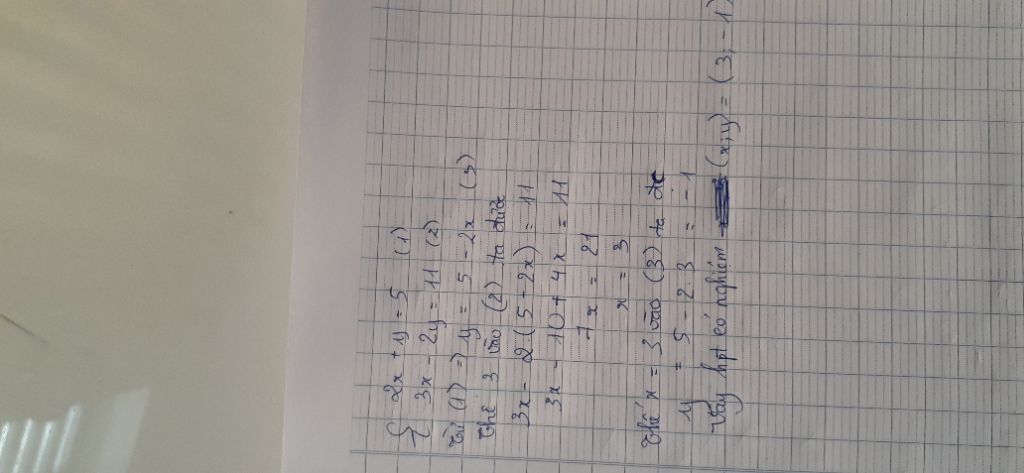 { 2x + y = 5 (1)
3x - 2y = 11 (2)
Từ (1) => y = 5 - 2x (3)
Thế 3 vào (2) ta được
3x - 2.(5-2x) = 11
3x - 10 + 4x = 11
7x = 21
x = 3
Thế x = 3 vào (3) ta đc
y = 5 - 2.3 = -1
Vậy hpt có nghiệm (x;y) = (3; -1)